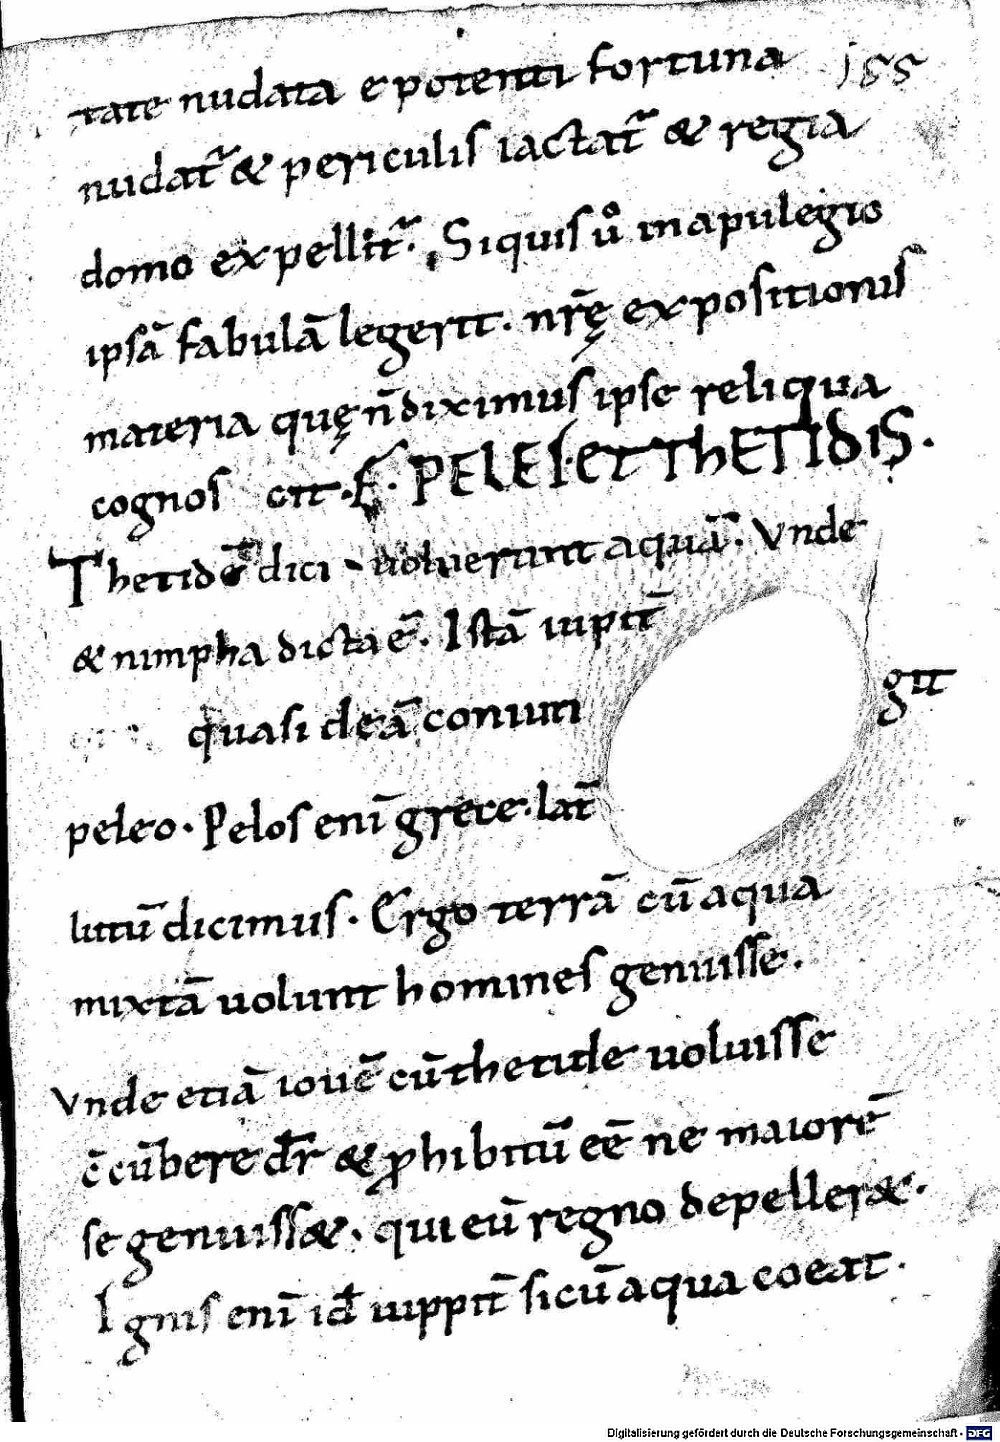 tate nudata e potenti fortuna 155
nudat᷑ & periculis iactat᷑ & regia
domo expellit᷑. Siquis ů in apulegio
ipsā fabulā legerit. nr̄ę expositionis
materia quę n̄ diximus ipse reliqua
cognos cit. F. PELEI. ET THETIDIS.
Thetidē dici uoluerunt aquā. Vnde
& nimpha dicta ē. Istā iupit̄
quasi deā coniun git
peleo. Pelos eni grece. lat̄
lutū dicimus. Ergo terrā cū aqua
mixtā uolunt homines genuisse.
Vnde etiā iouē cū thetide uoluisse
c̄cūbere dr̄ & ꝓhibitū eē ne maiorē
se genuiss&. qui eū regno depeller&.
Ignis enī id̄ iuppit̄ si cū aqua coeat.
Digitalisierung gefördert durch die Deutsche Forschungsgemeinschaft - DFG